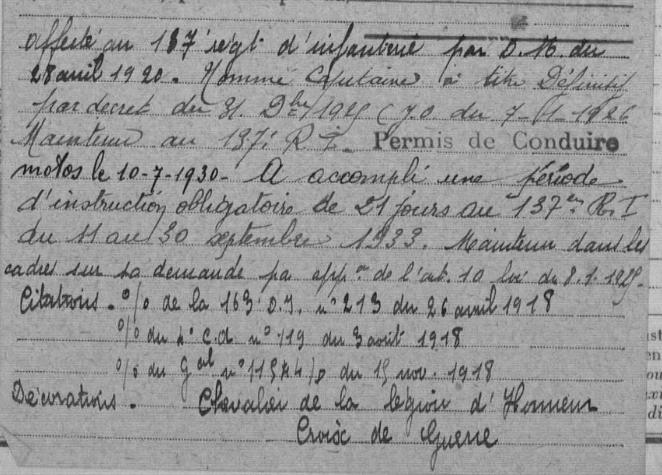 affecté au 137' régt d'infanterie par D.M. du
28 avril 1920. Nommé Capitaine à titre Définitif
par decret du 31. Dbre/1925 (J.O. du 7-1-1926
Maintenu au 137: R I. Permis de Conduire
motos le 10-7-1930. A accompli une période
d'instruction obligatoire de 21 jours au 137em R.I
du 11 au 30 septembre 1933. Maintenu dans les
cadres sur sa demande pa appon de l'art. 10 loi du 8.1.1925.
Citations. % de la 163' D.I. n° 213 du 26 avril 1918
% du C.A. n° 119 du 3 août 1918
% du Gal n° 11584 du 15 nov. 1918
Décorations. Chevalier de la légion d'Honneur
Croix de Guerre